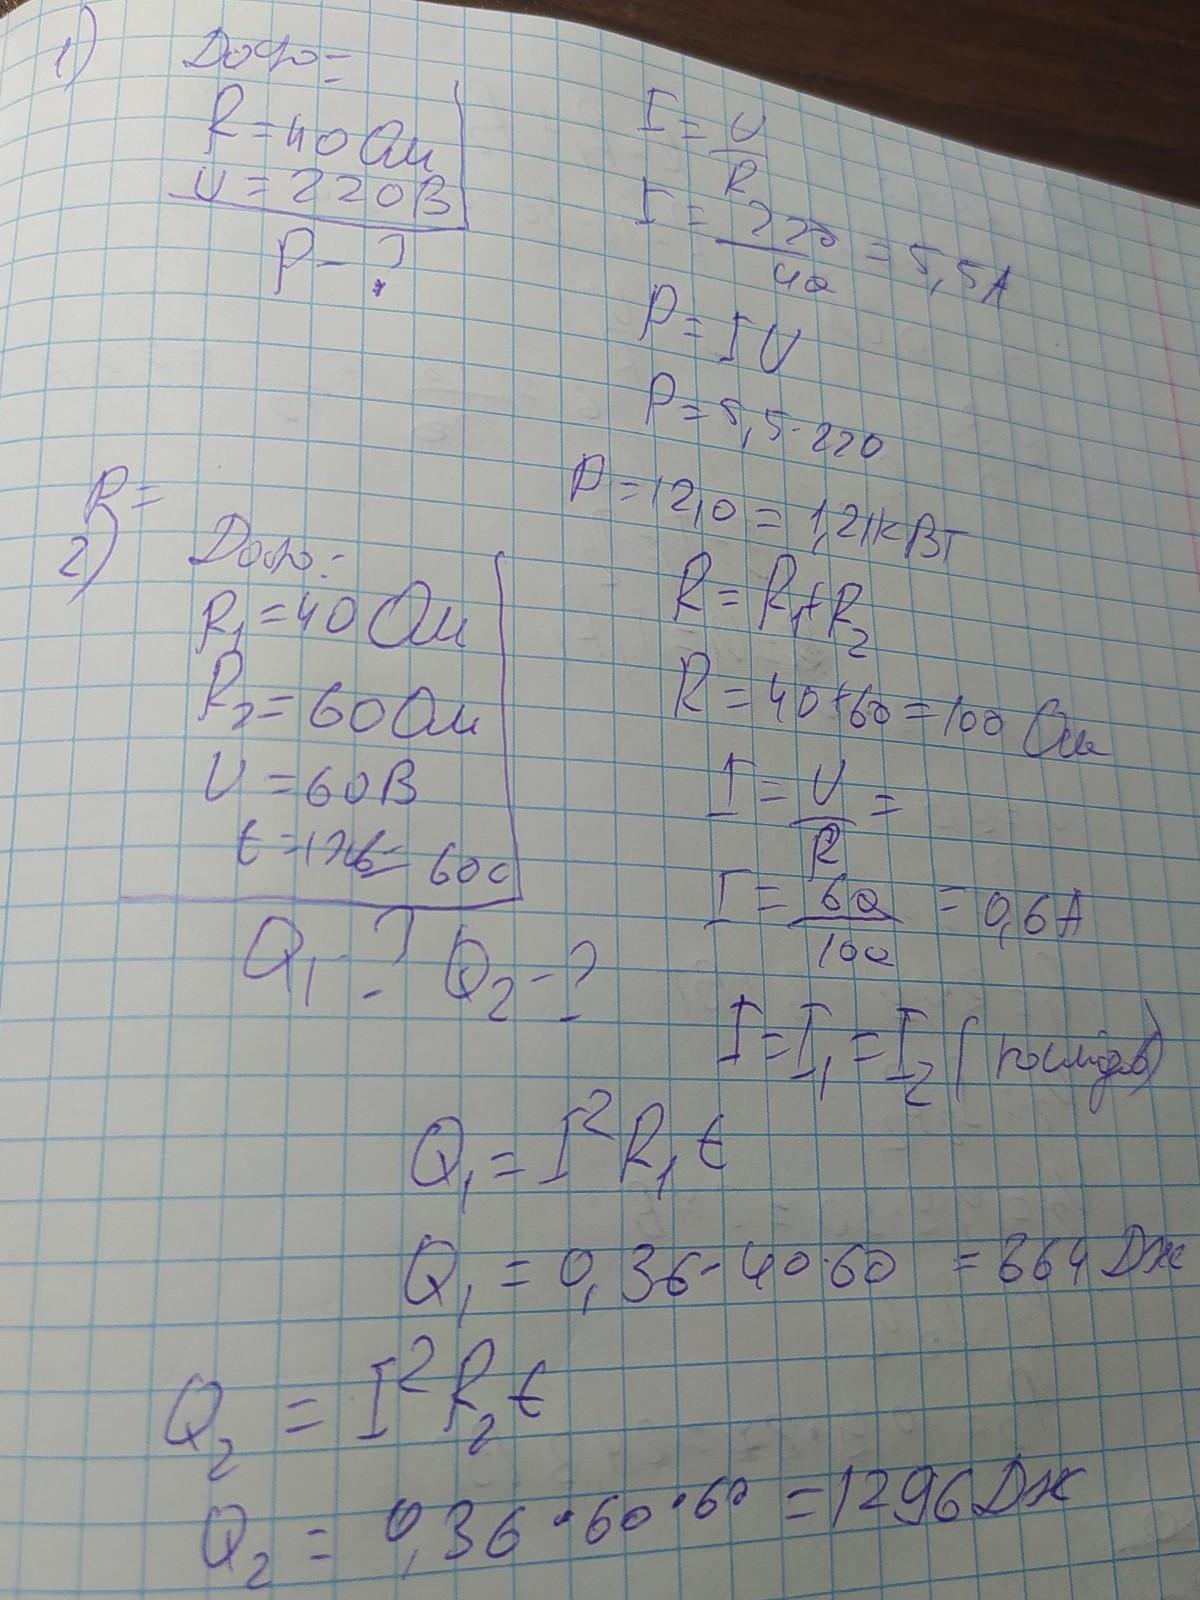 1)
Дано=
R=40 Ом
U=220В
P-?
I=U/R
I=220/40=5,5А
P=IU
P=5,5·220
P=1210=1,21кВт
R=
2)
Дано:
R₁=40 Ом
R₂=60 Ом
U=60В
t=1хв=60с
Q₁-? Q₂-?
R=R₁+R₂
R=40+60=100 Ом
I=U/R=
I=60/100=0,6А
I=I₁=I₂ (послідов)
Q₁=I²R₁t
Q₁=0,36·40·60=864 Дж
Q₂=I²R₂t
Q₂=0,36·60·60=1296Дж